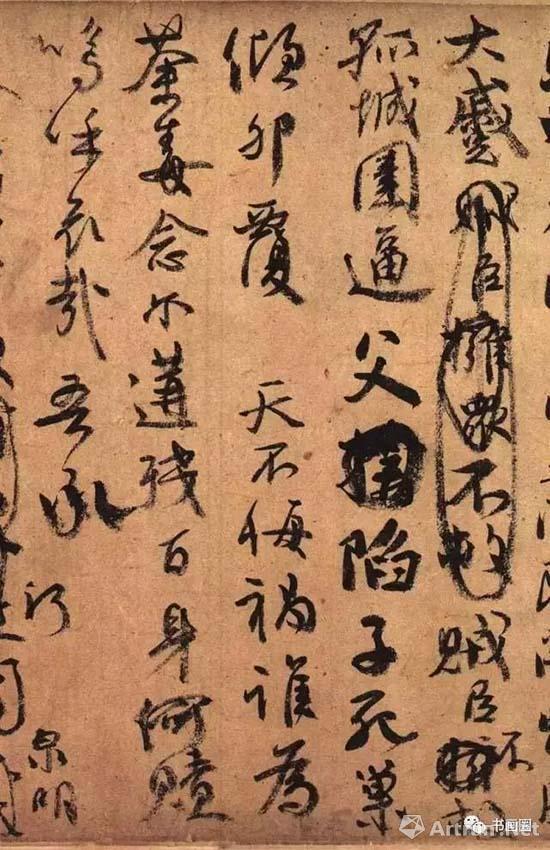 大蹙賊臣擁眾不救賊臣不救
孤城圍逼父陷子死巢
傾卵覆 天不悔禍誰為
荼毒念爾遘殘百身何贖
嗚呼哀哉吾承
泉明
书画圈
Artron.Net